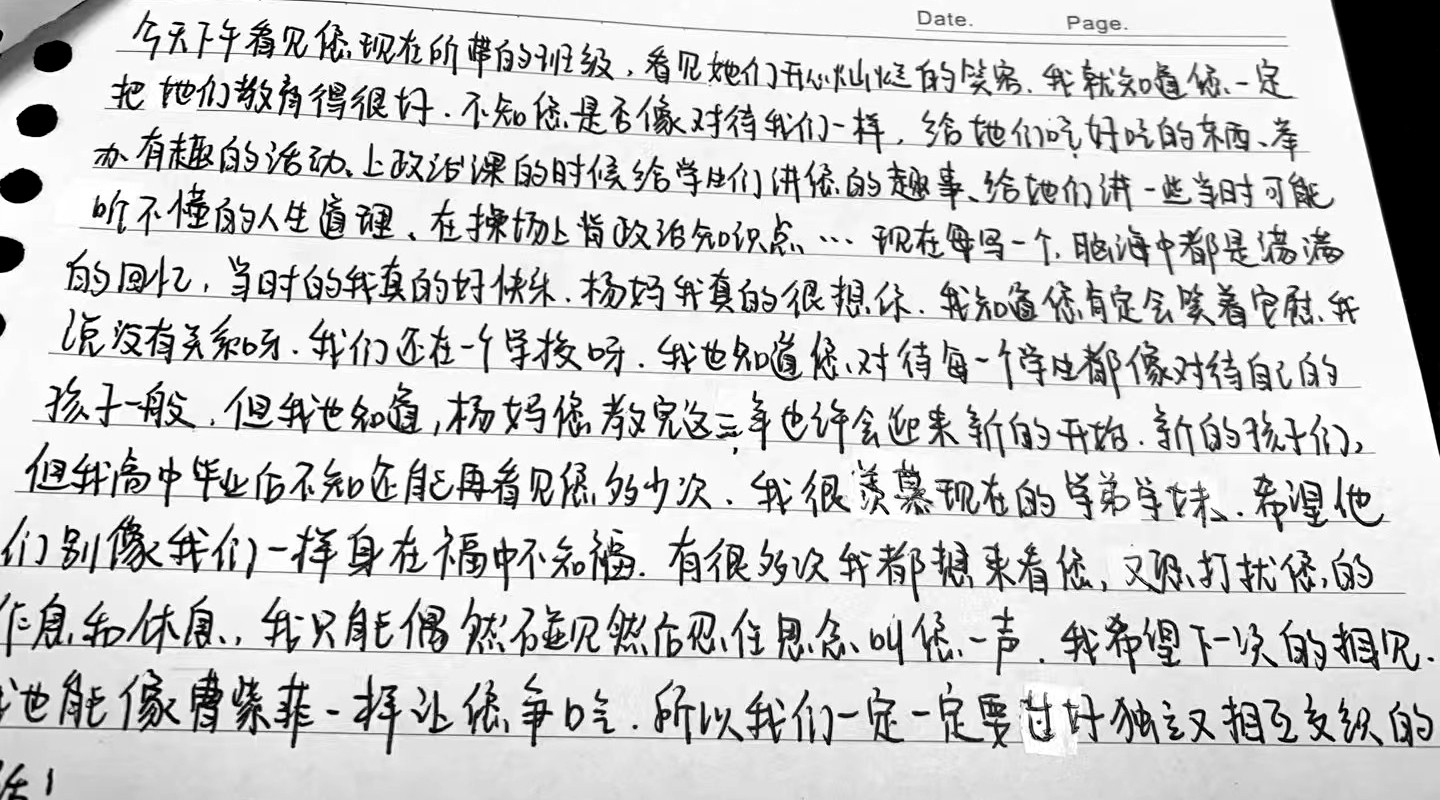 Date. Page.
今天下午看见您现在所带的班级，看见她们开心灿烂的笑容，我就知道您一定
把她们教育得很好．不知您是否像对待我们一样，给她们吃好吃的东西、举
办有趣的活动、上政治课的时候给学生们讲您的趣事、给她们讲一些当时可能
听不懂的人生道理、在操场上背政治知识点、… 现在每写一个，脑海中都是满满
的回忆，当时的我真的好快乐．杨妈我真的很想你．我知道您肯定会笑着安慰我
说没有关系呀．我们还在一个学校呀．我也知道您对待每一个学生都像对待自己的
孩子一般，但我也知道，杨妈您教完这三年也许会迎来新的开始．新的孩子们。
但我高中毕业后不知还能再看见您多少次．我很羡慕现在的学弟学妹、希望他
们别像我们一样身在福中不知福．有很多次我都想来看您，又恐打扰您的
作息和休息，我只能偶然碰见然后忍住思念叫您一声．我希望下一次的相见．
我也能像曹紫菲一样让您争吃．所以我们一定一定要过好独立又相互交织的
活！